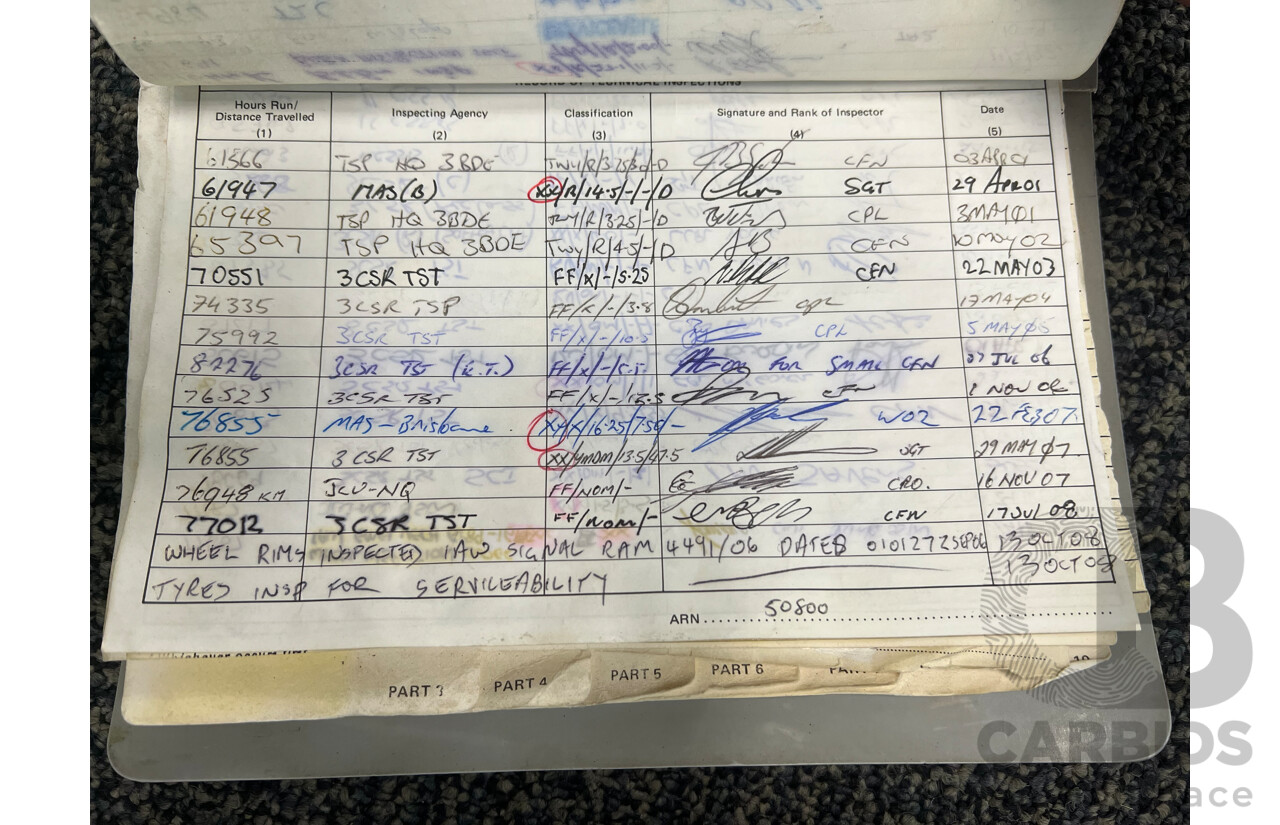 RECORD OF TECHNICAL INSPECTIONS
Hours Run/ Distance Travelled (1) Inspecting Agency (2) Classification (3) Signature and Rank of Inspector (4) Date (5)
61566 TSP HQ 3BDE CFN 03 APR 01
61947 MAS(B) XX/R/14.5/-/-/D SGT 29 APR 01
61948 TSP HQ 3BDE CPL 3 MAY 01
65397 TSP HQ 3BDE TWY/R/4.5/-/D CFN 10 MAY 02
70551 3CSR TST FF/X/-/5.25 CFN 22 MAY 03
74335 3CSR TSP FF/X/-/3.8 CPL 17 MAY 04
75992 3CSR TST FF/X/-/10.5 CPL 5 MAY 05
82276 3CSR TST (K.T.) FF/X/-/5.5 FOR CFN JUL 06
76525 3CSR TST FF/X/-/12.5 CFN 1 NOV 06
76855 MAS-Brisbane. WO2 22 FEB 07
76855 3 CSR TST SGT 29 MAY 07
76948 KM JCU-NQ FF/NOM/- CRO. 16 NOV 07
77012 3CSR TST FF/NOM/- CFN 17 JUL 08
WHEEL RIMS INSPECTED IAW SIGNAL RAM 4491/06 DATED 010127ZSEP06 13 OCT 08
TYRES INSP FOR SERVICEABILITY 13 OCT 08
ARN 50800
PART 3 PART 4 PART 5 PART 6
CARBIDS
ace